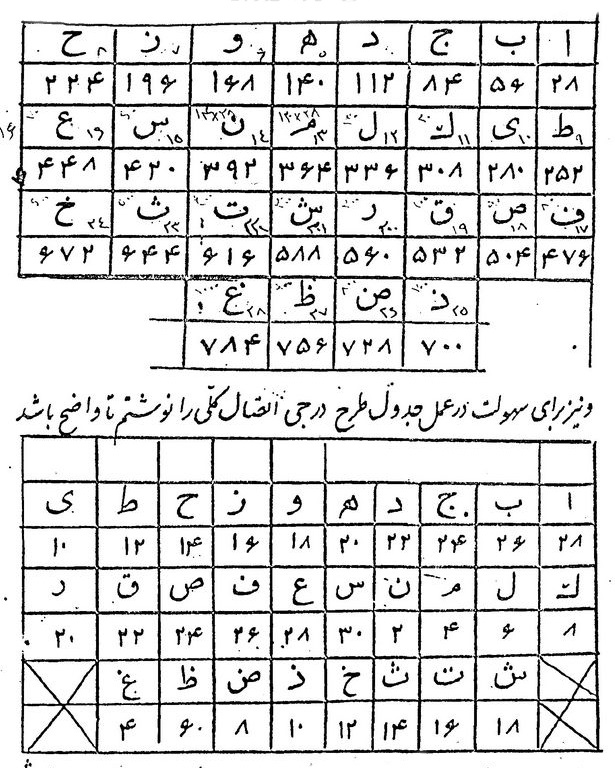 ا ب ج د ه و ز ح
۲۸ ۵۶ ۸۴ ۱۱۲ ۱۴۰ ۱۶۸ ۱۹۶ ۲۲۴
ط ی ك ل م ن س ع
۲۵۲ ۲۸۰ ۳۰۸ ۳۳۶ ۳۶۴ ۳۹۲ ۴۲۰ ۴۴۸
ف ص ق ر ش ت ث خ
۴۷۶ ۵۰۴ ۵۳۲ ۵۶۰ ۵۸۸ ۶۱۶ ۶۴۴ ۶۷۲
ذ ض ظ غ
۷۰۰ ۷۲۸ ۷۵۶ ۷۸۴
و نیز برای سهولت در عمل جدول طرح درجی اتصال کلی را نوشتم تا واضح باشد
ا ب ج د ه و ز ح ط ی
۲۸ ۲۶ ۲۴ ۲۲ ۲۰ ۱۸ ۱۶ ۱۴ ۱۲ ۱۰
ك ل م ن س ع ف ص ق ر
۸ ۶ ۴ ۲ ۳۰ ۲۸ ۲۶ ۲۴ ۲۲ ۲۰
ش ت ث خ ذ ض ظ غ
۱۸ ۱۶ ۱۴ ۱۲ ۱۰ ۸ ۶۰ ۴